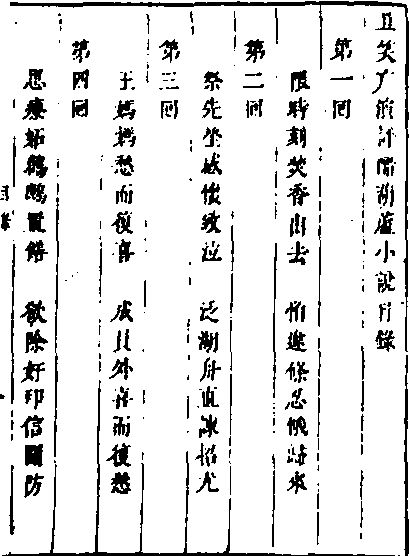 且笑广演評醋葫蘆小說目錄
第一回
限時刻焚香出去 怕違條忍餓歸來
第二回
祭先塋感懷致泣 泛湖舟直諫招尤
第三回
王媽媽愁而復喜 成員外喜而復愁
第四回
思療妬鶬鶊置饍 欲除奸印信關防
目錄